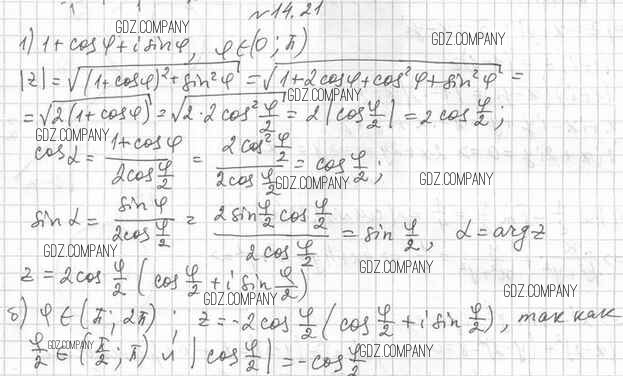 №14.21
GDZ.COMPANY
1) 1 + cosφ + i sinφ, φ ∈ (0; π)
GDZ.COMPANY
|z| = √((1 + cosφ)² + sin²φ) = √(1 + 2cosφ + cos²φ + sin²φ) =
GDZ.COMPANY
= √(2(1 + cosφ)) = √(2·2cos² φ/2) = 2|cos φ/2| = 2cos φ/2;
GDZ.COMPANY
cosα = (1 + cosφ)/(2cos φ/2) = (2cos² φ/2)/(2cos φ/2) = cos φ/2;
GDZ.COMPANY GDZ.COMPANY
sin α = sin φ/(2cos φ/2) = (2 sin φ/2 cos φ/2)/(2cos φ/2) = sin φ/2, α = arg z
GDZ.COMPANY
GDZ.COMPANY
z = 2cos φ/2 (cos φ/2 + i sin φ/2)
GDZ.COMPANY GDZ.COMPANY
б) φ ∈ (π; 2π); z = -2cos φ/2 (cos φ/2 + i sin φ/2), так как
GDZ.COMPANY
φ/2 ∈ (π/2; π) и |cos φ/2| = -cos φ/2
GDZ.COMPANY